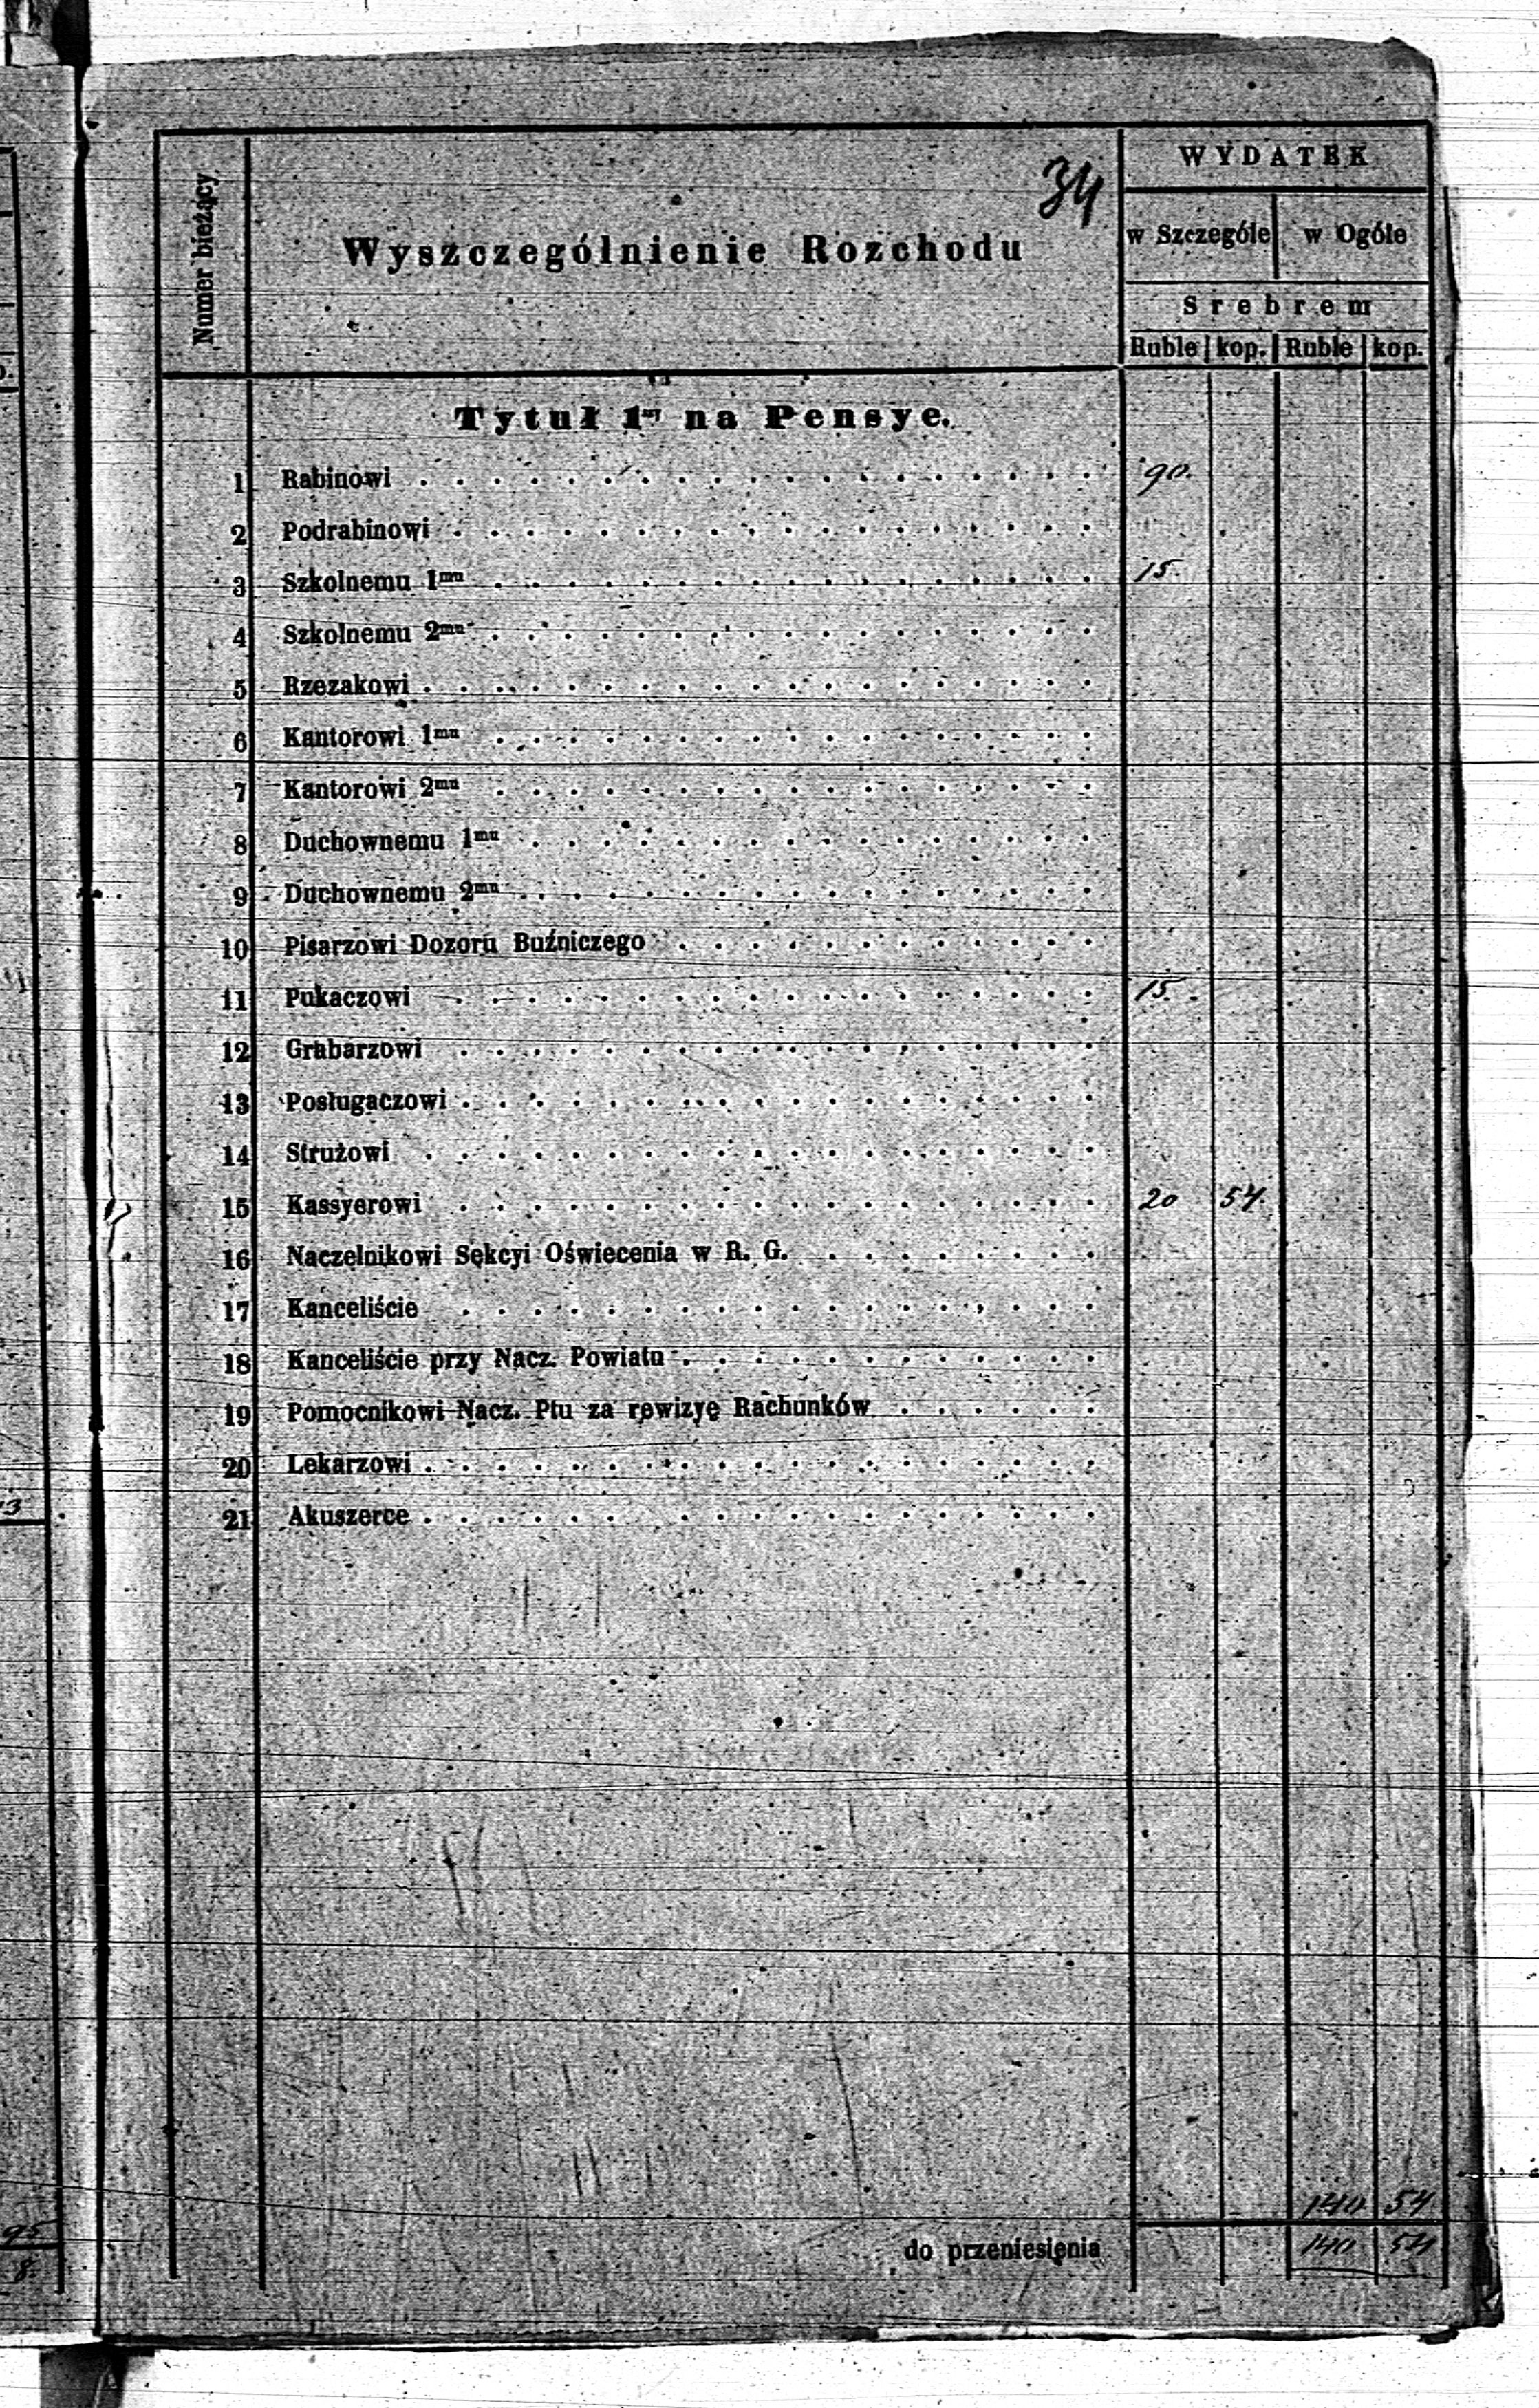 34
Numer bieżący
Wyszczególnienie Rozchodu
WYDATEK
w Szczególe w Ogóle
Srebrem
Ruble kop. Ruble kop.
Tytuł 1ny na Pensye.
1 Rabinowi . . . . . . . . . . . . . . . . . . . 90.
2 Podrabinowi . . . . . . . . . . . . . . . . . .
3 Szkolnemu 1mu . . . . . . . . . . . . . . . . . 15.
4 Szkolnemu 2mu . . . . . . . . . . . . . . . . .
5 Rzezakowi . . . . . . . . . . . . . . . . . . .
6 Kantorowi 1mu . . . . . . . . . . . . . . . . .
7 Kantorowi 2mu . . . . . . . . . . . . . . . . .
8 Duchownemu 1mu . . . . . . . . . . . . . . . .
9 Duchownemu 2mu . . . . . . . . . . . . . . . .
10 Pisarzowi Dozoru Buźniczego . . . . . . . . . . . .
11 Pukaczowi . . . . . . . . . . . . . . . . . . 15.
12 Grabarzowi . . . . . . . . . . . . . . . . . .
13 Posługaczowi . . . . . . . . . . . . . . . . . .
14 Strużowi . . . . . . . . . . . . . . . . . . .
15 Kassyerowi . . . . . . . . . . . . . . . . . . 20 54.
16 Naczelnikowi Sekcyi Oświecenia w R. G. . . . . . . . .
17 Kanceliście . . . . . . . . . . . . . . . . . .
18 Kanceliście przy Nacz. Powiatu . . . . . . . . . . . .
19 Pomocnikowi Nacz. Ptu za rewizyę Rachunków . . . . . .
20 Lekarzowi . . . . . . . . . . . . . . . . . . .
21 Akuszerce . . . . . . . . . . . . . . . . . .
140 54
do przeniesienia 140 54